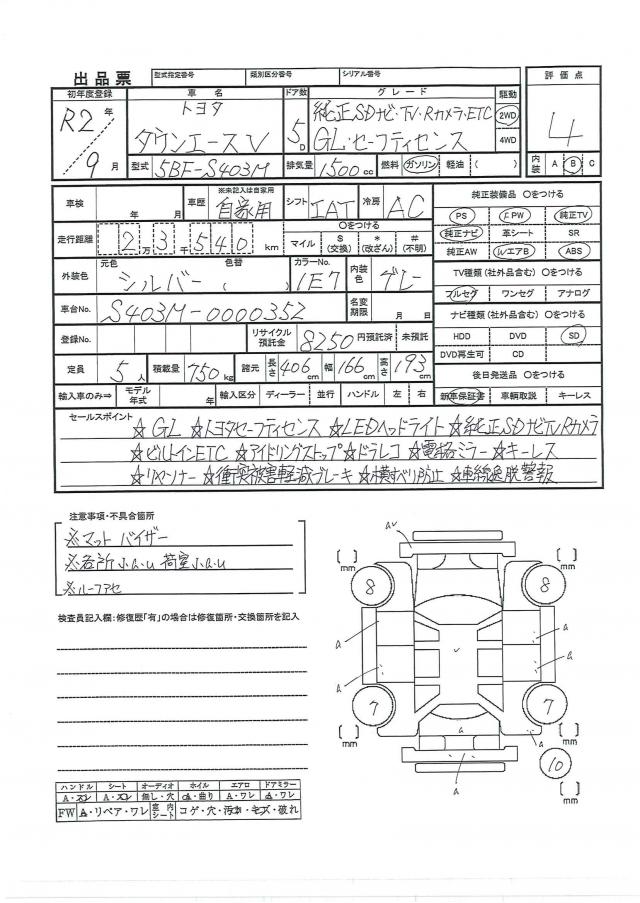 出品票 型式指定番号 類別区分番号 シリアル番号 評価点
初年度登録 車名 ドア数 グレード 駆動
R2年 トヨタ 純正SDナビ・TV・Rカメラ・ETC 2WD 4
タウンエースV 5D GL・セーフティセンス 4WD
9月 型式 5BF-S403M 排気量 1500cc 燃料 ガソリン・軽油( ) 内装 A B C
車検 年 月 車歴 ※未記入は自家用 自家用 シフト IAT 冷房 AC 純正装備品 〇をつける
PS PW 純正TV
走行距離 2万3千540km 〇をつける マイル $(交換) *(改ざん) #(不明) 純正ナビ 革シート SR
純正AW エアB ABS
外装色 元色 シルバー 色替( ) カラーNo. 1E7 内装色 グレー TV種類(社外品含む) 〇をつける
フルセグ ワンセグ アナログ
車台No. S403M-0000352 名変期限 月 日 ナビ種類(社外品含む)〇をつける
登録No. リサイクル預託金 8250円預託済 未預託 HDD DVD SD
DVD再生可 CD
定員 5人 積載量 750kg 諸元 長さ 406cm 幅 166cm 高さ 193cm 後日発送品 〇をつける
輸入車のみ⇒ モデル年式 年 輸入区分 ディーラー 並行 ハンドル 左 右 新車保証書 車輌取説 キーレス
セールスポイント
☆GL ☆トヨタセーフティセンス ☆LEDヘッドライト ☆純正SDナビTVRカメラ
☆ビルトインETC ☆アイドリングストップ ☆ドラレコ ☆電格ミラー ☆キーレス
☆リヤソナー ☆衝突被害軽減ブレーキ ☆横すべり防止 ☆車線逸脱警報
注意事項・不具合箇所
※マット バイザー
※各所小a.u 荷室小a.u
※ルーフアセ
検査員記入欄:修復歴「有」の場合は修復箇所・交換箇所を記入
[ ] mm [ ] mm
8 8
a a
a a
7 7
[ ] mm [ ] mm
a
10
a
[ ] mm
ハンドル シート オーディオ ホイル エアロ ドアミラー
A・スレ A・スレ 無し・穴 a・曲り A・ワレ A・ワレ
FW A・リペア・ワレ 室内シート コゲ・穴・汚れ・キズ・破れ